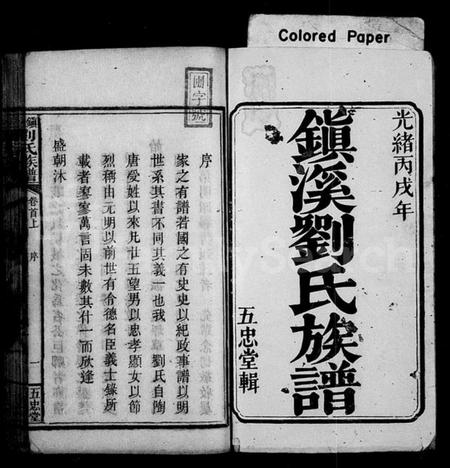 Colored Paper
光緒丙戌年
鎮溪劉氏族譜
五忠堂輯
團字號
序
家之有譜若國之有史史以紀政事譜以明
世系其書不同其義一也我 劉氏自陶
唐受姓以來凡廿五望男以忠孝顯女以節
烈稱由元明以前世有令德名臣義士緣所
載者寥寥萬言固未數其什一而欣逢
盛朝沐
鎮 劉氏族譜
卷首上
序
一
五忠堂